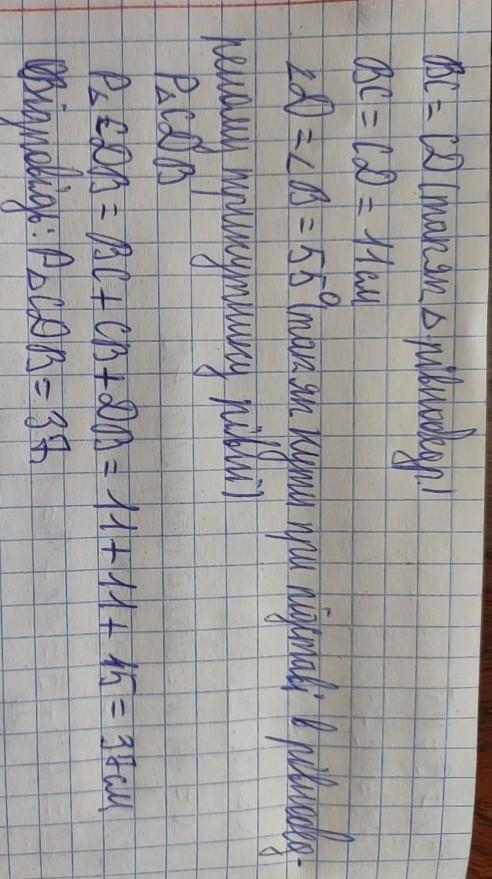 BC = CD (так як Δ рівнобедр)
BC = CD = 11 см
∠D = ∠B = 55° (так як кути при підставі в рівнобед-
реному трикутнику рівні)
P△CDB
P△CDB = BC + CB + DB = 11 + 11 + 15 = 37 см
Відповідь: P△CDB = 37